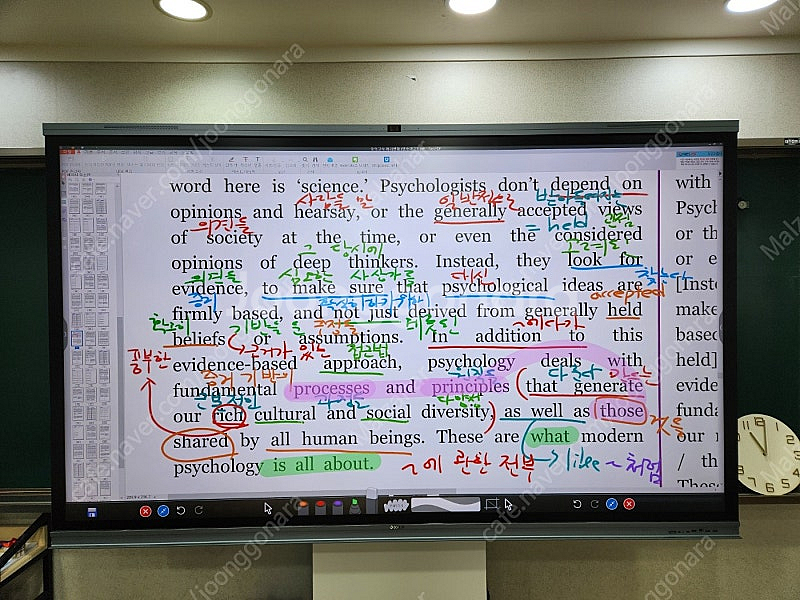 word here is ‘science.’ Psychologists don’t depend on
사람들 말 일반적으로 받아들여지는
opinions and hearsay, or the generally accepted views
의견들 = held 관점
of society at the time, or even the considered
그 당시에 고려되는
opinions of deep thinkers. Instead, they look for
의견들 심오한 사상가들 대신 찾는다
evidence, to make sure that psychological ideas are
증거 확실히 하기 위해 accepted
firmly based, and not just derived from generally held
확고히 기반을 둔 ~에다가
beliefs or assumptions. In addition to this
풍부한 근거가 있는 접근법
evidence-based approach, psychology deals with
증거 기반의 다룬다 만드는
fundamental processes and principles (that generate
근본적인 과정들 다양성
our rich cultural and social diversity), as well as those
것들
shared by all human beings. These are what modern
psychology is all about. ~에 관한 전부 → like ~처럼
with
Psych
or th
or e
[Inst
make
based
held]
evide
funda
our r
/ th
These
cafe.naver.com/joonggonara